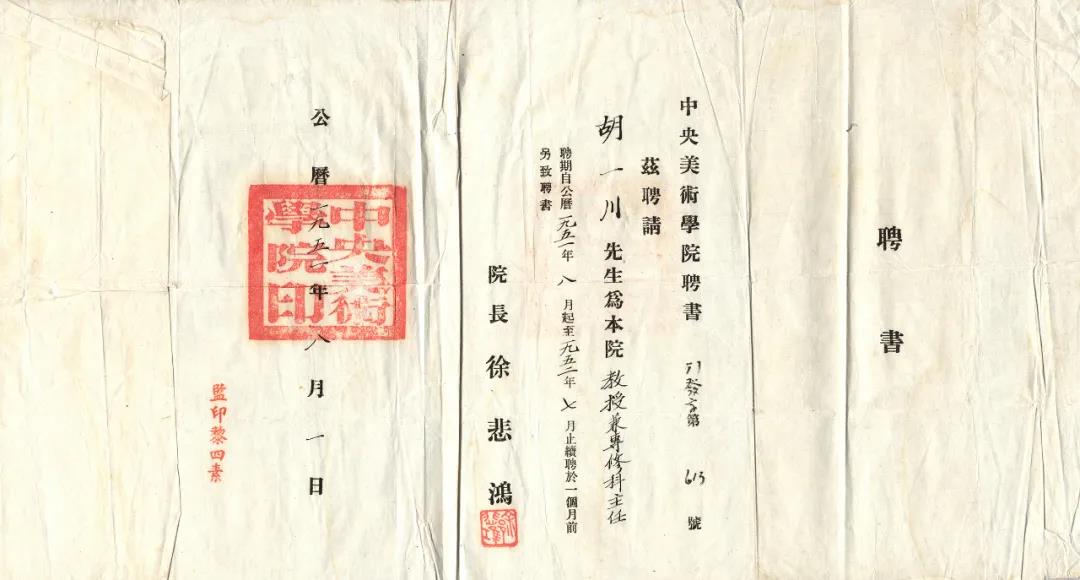 聘書
中央美術學院聘書 發字第 613 號
茲聘請
胡一川先生爲本院教授兼專修科主任
聘期自公曆一九五一年八月起至一九五二年七月止續聘於一個月前
另致聘書
院長徐悲鴻
公曆一九五一年八月一日
中央美術
學院印
監印黎四素